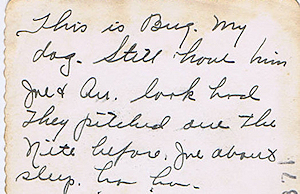 This is Bug. My
dog. Still have him
Joe & Au. look bad
They pitched one the
Nite before. Joe about
sleep. ha ha.